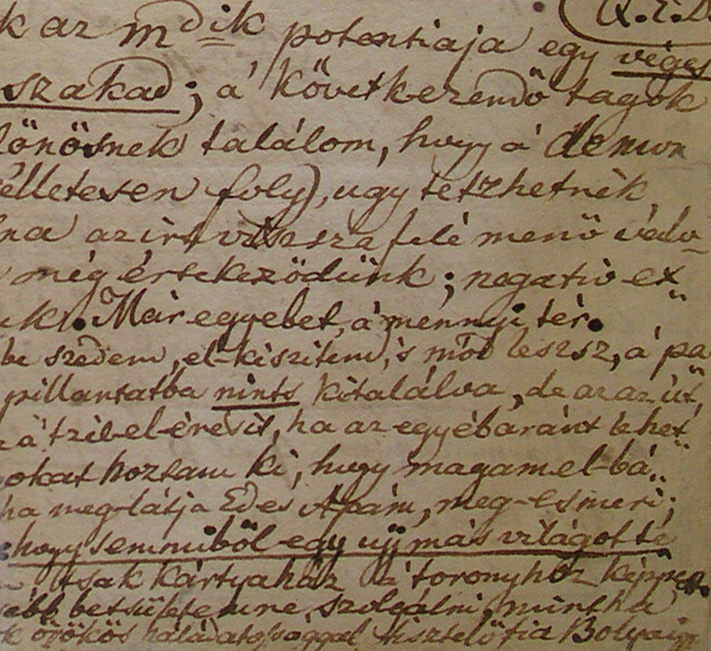 Q.E.D.
k az m dik potentiaja egy véges
szakad; á következendő tagok
lönösnek találom, hogy á demon
élletesen foly), ugy tetzhetnék
na azért viszsza felé menő
még értekeződünk; negativ ex
uk. Már egyebet, á mennyi tér.
be szedem, el-készitem, 's mód leszsz, á pa
pillantatba nints kitalálva, de az az út,
á tzél-el-érését, ha az egyébaránt lehet
okat hoztam ki, hogy magam el-bá
ha meg-látja Édes Apám, meg-esmeri;
hogy semmiből egy ujj más világot te
tsak kártyaház á toronyhoz képpest
ébb szolgálni, mintha
k örökös háládatossággal tisztelő fia Bolyai